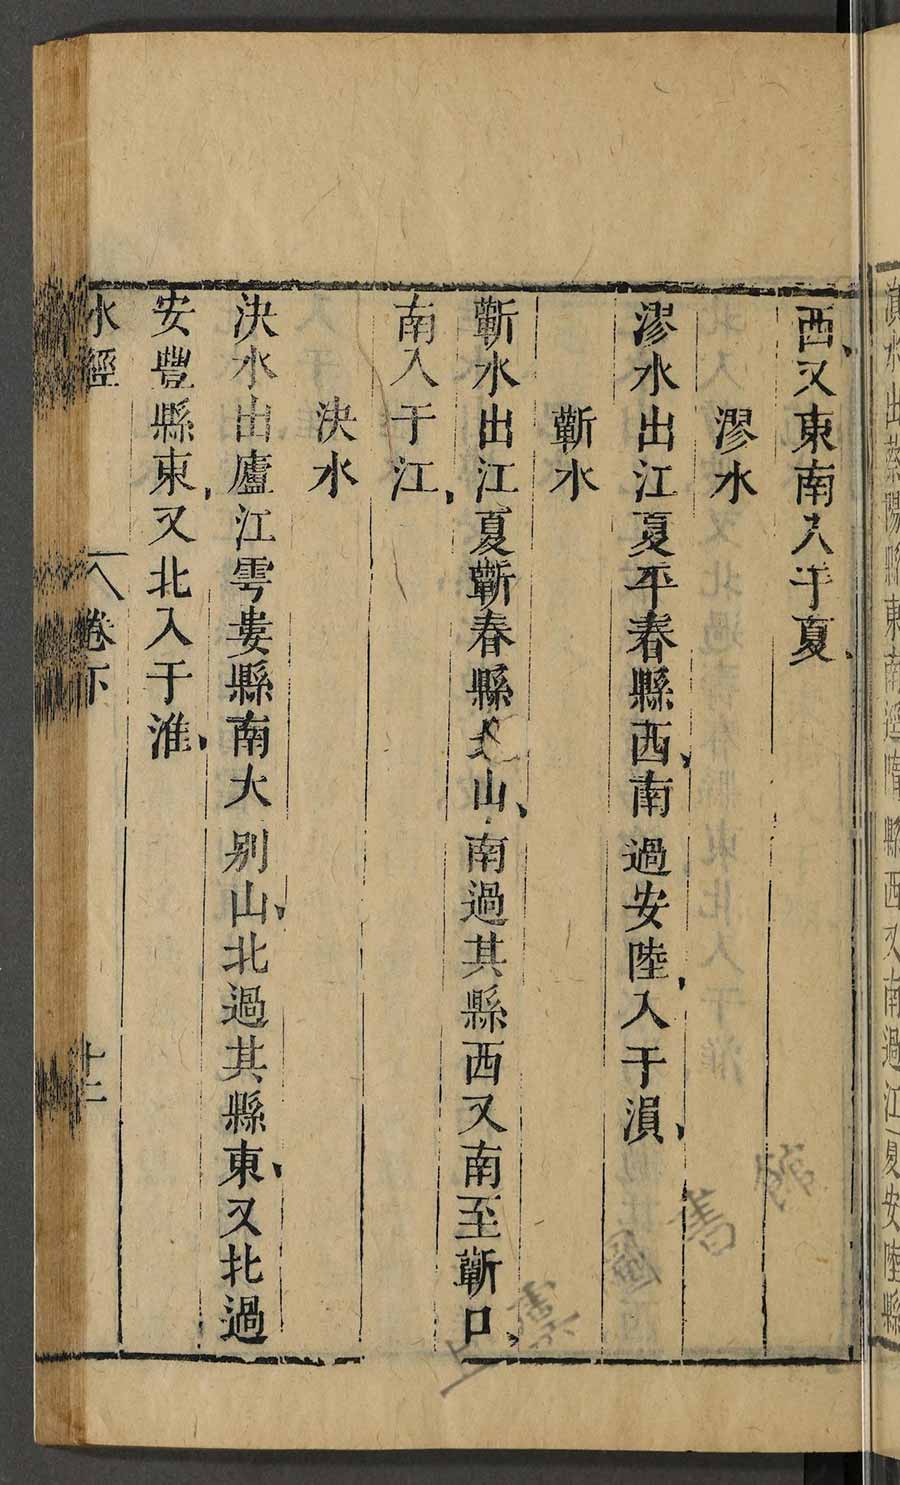 溳水出蔡陽縣東南逕隋縣西又南過江夏安陸縣
西又東南入于夏
漻水
漻水出江夏平春縣西南過安陸入于溳
蘄水
蘄水出江夏蘄春縣北山南過其縣西又南至蘄口
南入于江
決水
決水出廬江雩婁縣南大別山北過其縣東又北過
安豐縣東又北入于淮
水經 卷下 十二